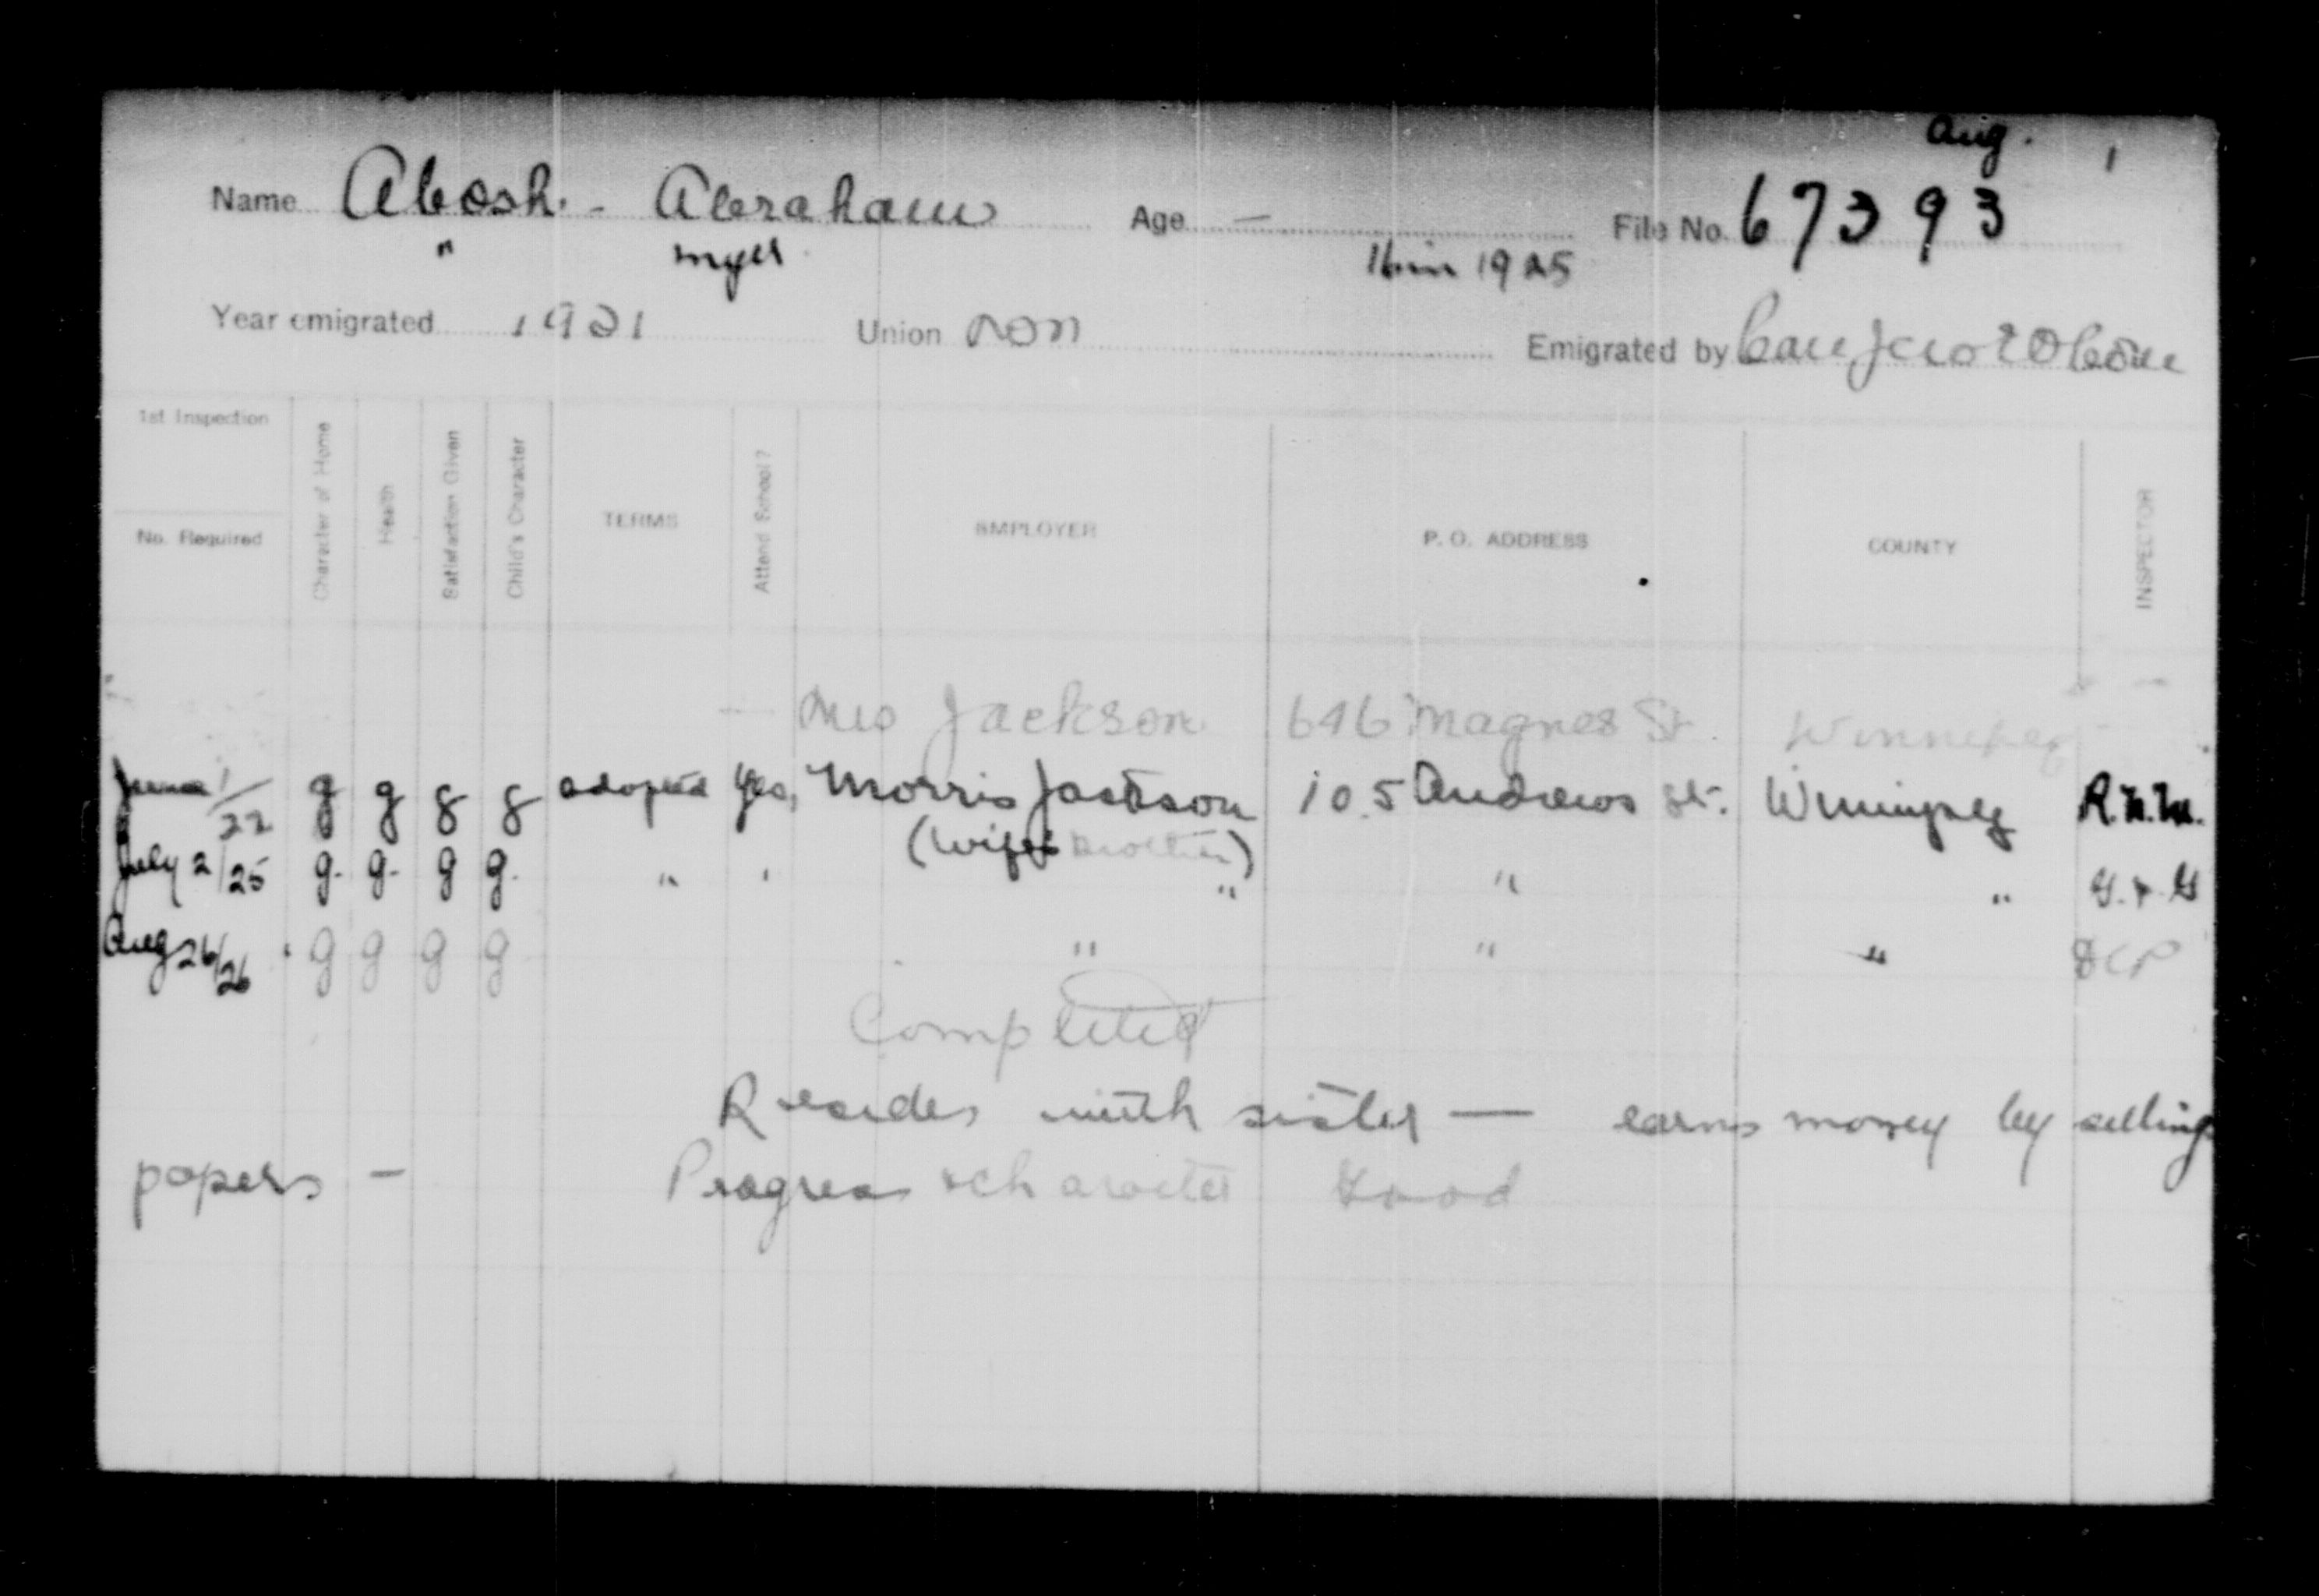 Aug. 1
Name Abosh. - Abraham Age — File No. 67393
" Myer 16 in 1925
Year emigrated 1921 Union non Emigrated by Can Jews
1st Inspection
No. Required
Character of Home
Health
Satisfaction Given
Child's Character
TERMS
Attend School?
EMPLOYER
P. O. ADDRESS
COUNTY
INSPECTOR
— Mrs Jackson 646 Magnes St. Winnipeg
June 1/22 g g g g adopted Yes, Morris Jackson 105 Andrews St. Winnipeg R.N.M.
(Wife's brother)
July 2/25 g. g. g g. " ' " " "
Aug 26/26 g g g g " " "
Completed
Resides with sister — earns money by selling
papers — Progress & character good